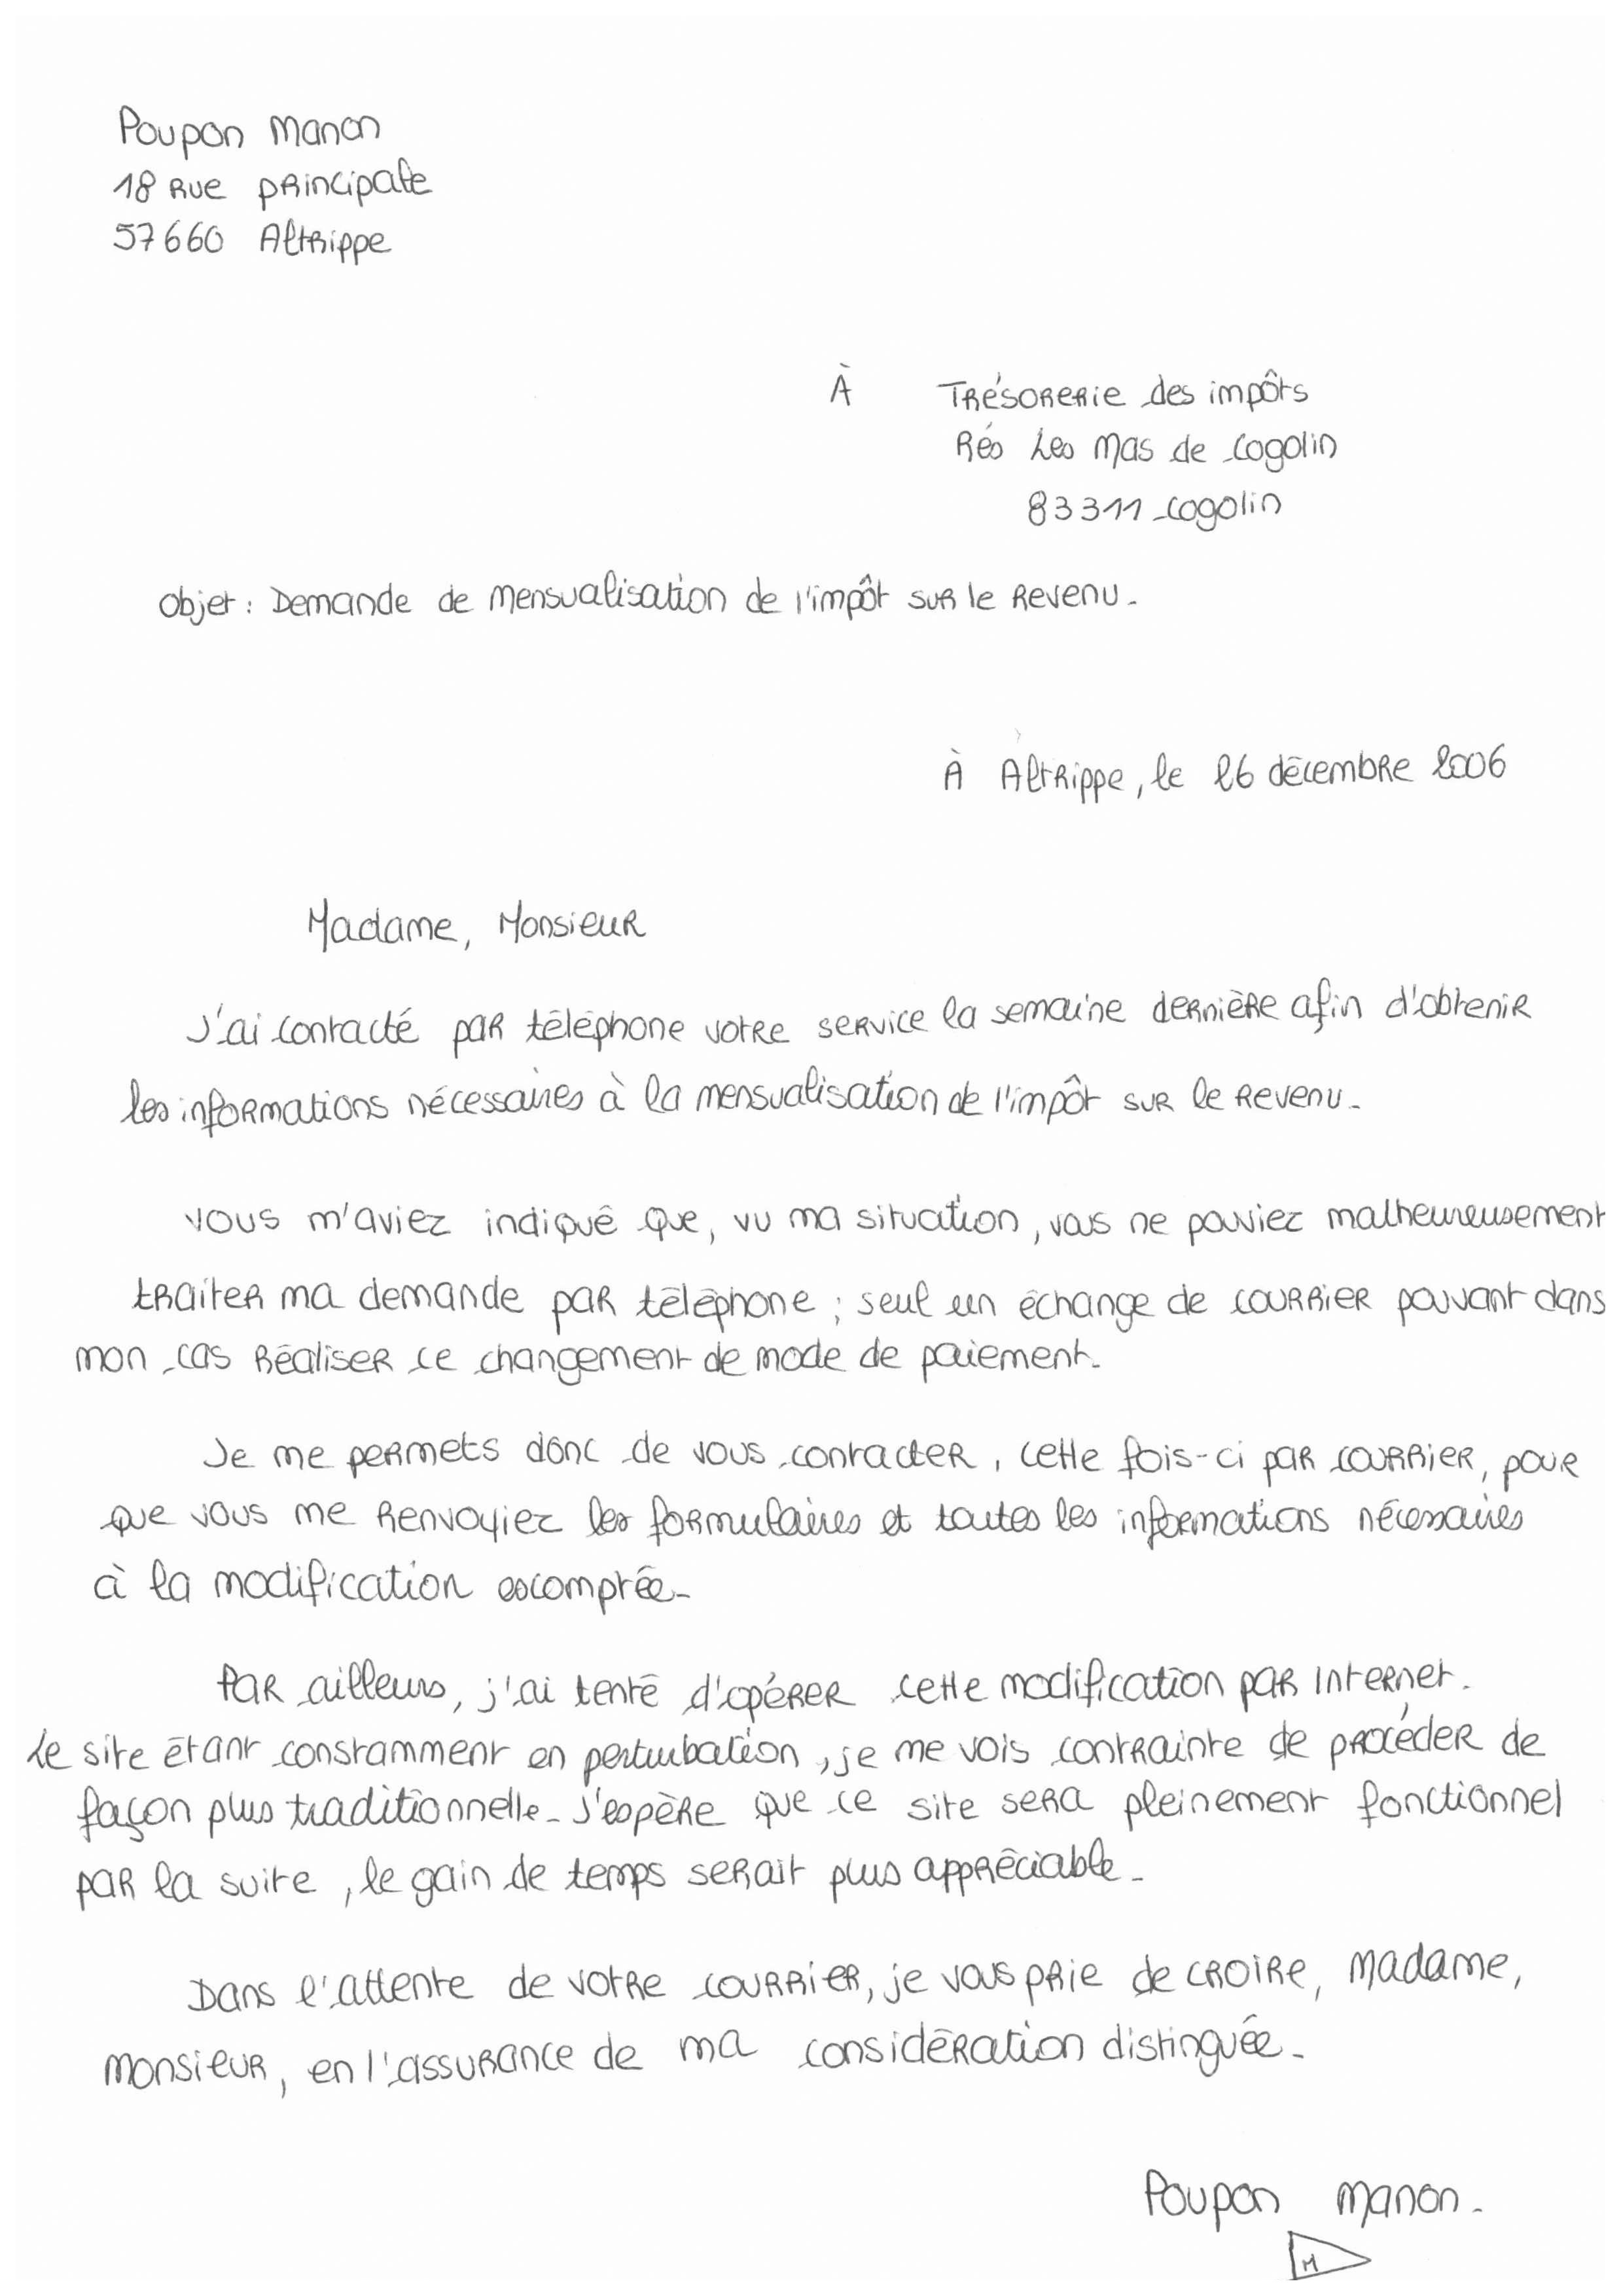 Poupon Manon
18 Rue principale
57660 Altrippe
À Trésorerie des impôts
Rés Les Mas de Cogolin
83311 Cogolin
Objet : Demande de mensualisation de l'impôt sur le Revenu.
À Altrippe, le 26 décembre 2006
Madame, Monsieur
J'ai contacté par téléphone votre service la semaine dernière afin d'obtenir
les informations nécessaires à la mensualisation de l'impôt sur le Revenu.
Vous m'aviez indiqué que, vu ma situation, vous ne pouviez malheureusement
traiter ma demande par téléphone ; seul un échange de courrier pouvant dans
mon cas Réaliser ce changement de mode de paiement.
Je me permets donc de vous contacter, cette fois-ci par courrier, pour
que vous me Renvoyiez les formulaires et toutes les informations nécessaires
à la modification escomptée.
Par ailleurs, j'ai tenté d'opérer cette modification par Internet.
Le site étant constamment en perturbation, je me vois contrainte de procéder de
façon plus traditionnelle. J'espère que ce site sera pleinement fonctionnel
par la suite, le gain de temps serait plus appréciable.
Dans l'attente de votre courrier, je vous prie de croire, Madame,
Monsieur, en l'assurance de ma considération distinguée.
Poupon Manon.
M